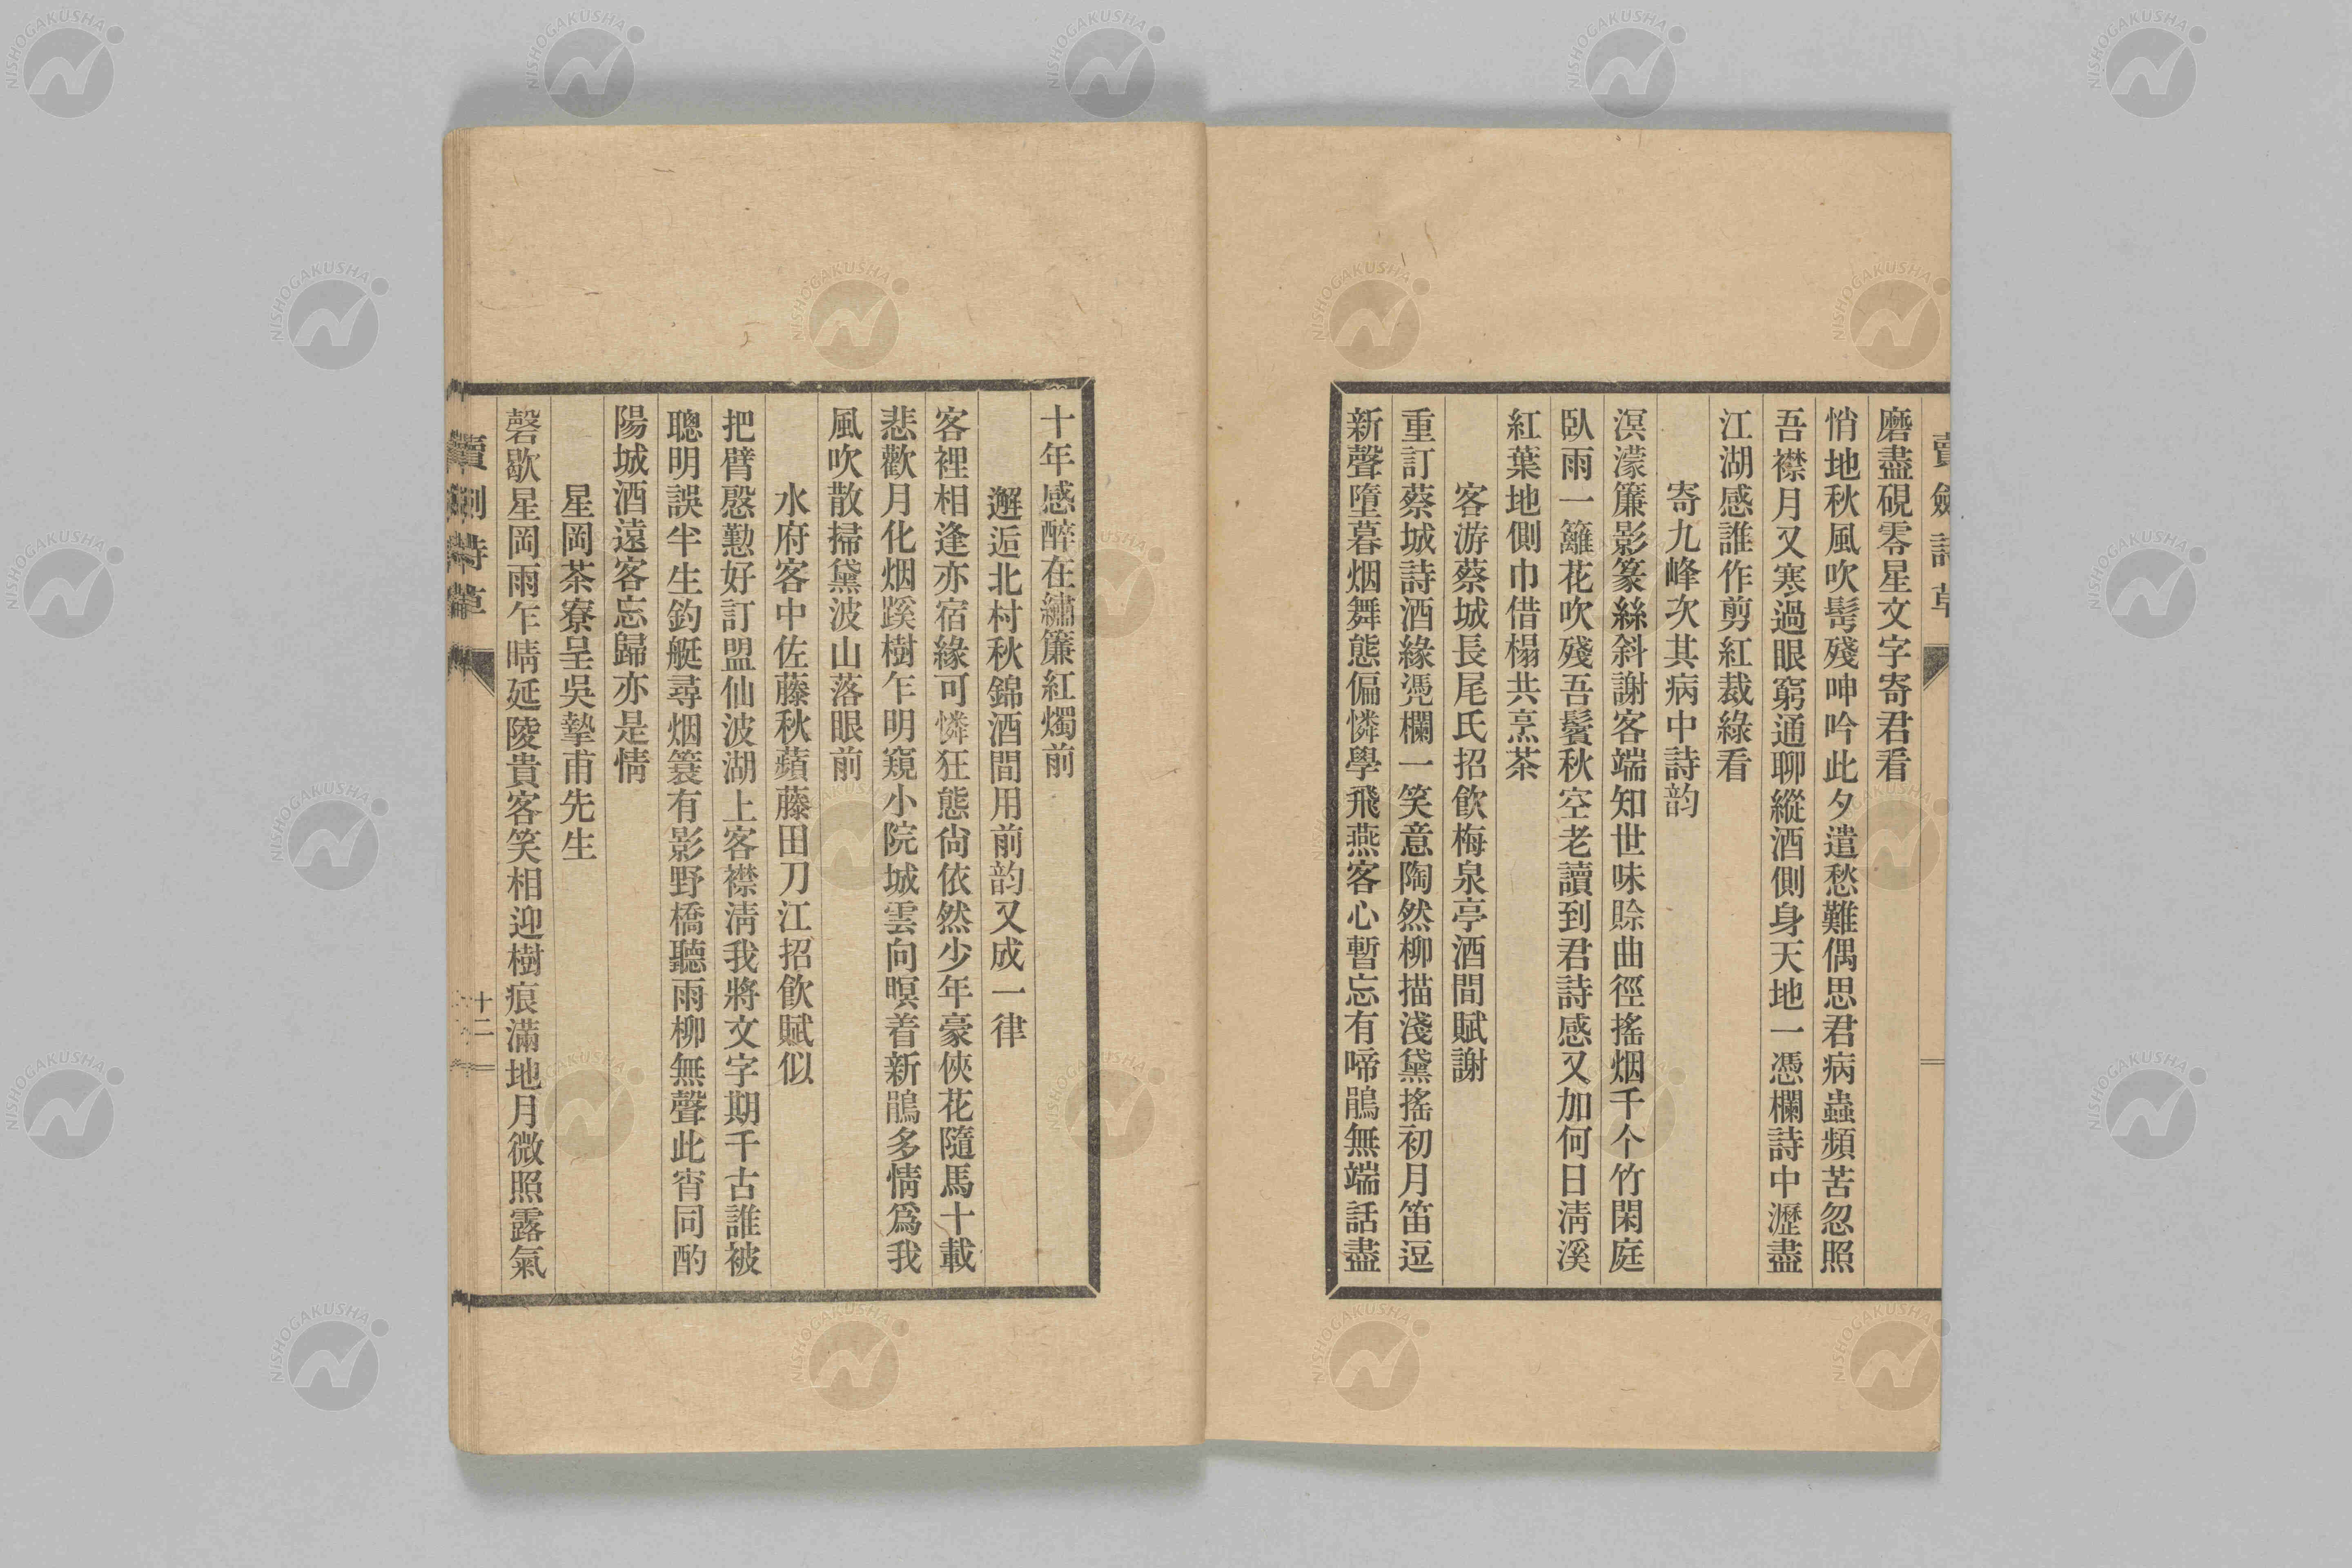 賣劍詩草
磨盡硯零星文字寄君看
悄地秋風吹髩殘呻吟此夕遣愁難偶思君病蟲頻苦忽照
吾襟月又寒過眼窮通聊縱酒側身天地一憑欄詩中瀝盡
江湖感誰作剪紅裁綠看
寄九峰次其病中詩韵
溟濛簾影篆絲斜謝客端知世味賒曲徑搖烟千个竹閑庭
臥雨一籬花吹殘吾鬢秋空老讀到君詩感又加何日清溪
紅葉地側巾借榻共烹茶
客游蔡城長尾氏招飲梅泉亭酒間賦謝
重訂蔡城詩酒緣凭欄一笑意陶然柳描淺黛搖初月笛逗
新聲墮暮烟舞態偏憐學飛燕客心暫忘有啼鵑無端話盡
十年感醉在繡簾紅燭前
邂逅北村秋錦酒間用前韵又成一律
客裡相逢亦宿緣可憐狂態尙依然少年豪俠花隨馬十載
悲歡月化烟蹊樹乍明窺小院城雲向暝着新鵑多情爲我
風吹散掃黛波山落眼前
水府客中佐藤秋蘋藤田刀江招飲賦似
把臂慇懃好訂盟仙波湖上客襟淸我將文字期千古誰被
聰明誤半生釣艇尋烟簑有影野橋聽雨柳無聲此宵同酌
陽城酒遠客忘歸亦是情
星岡茶寮呈吳摯甫先生
磬歇星岡雨乍晴延陵貴客笑相迎樹痕滿地月微照露氣
賣劍詩草
十二
NISHOGAKUSHA